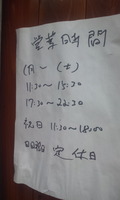 営業時間
(月)〜(土)
11:30〜15:30
17:30〜22:30
祝日 11:30〜18:00
日曜日 定休日